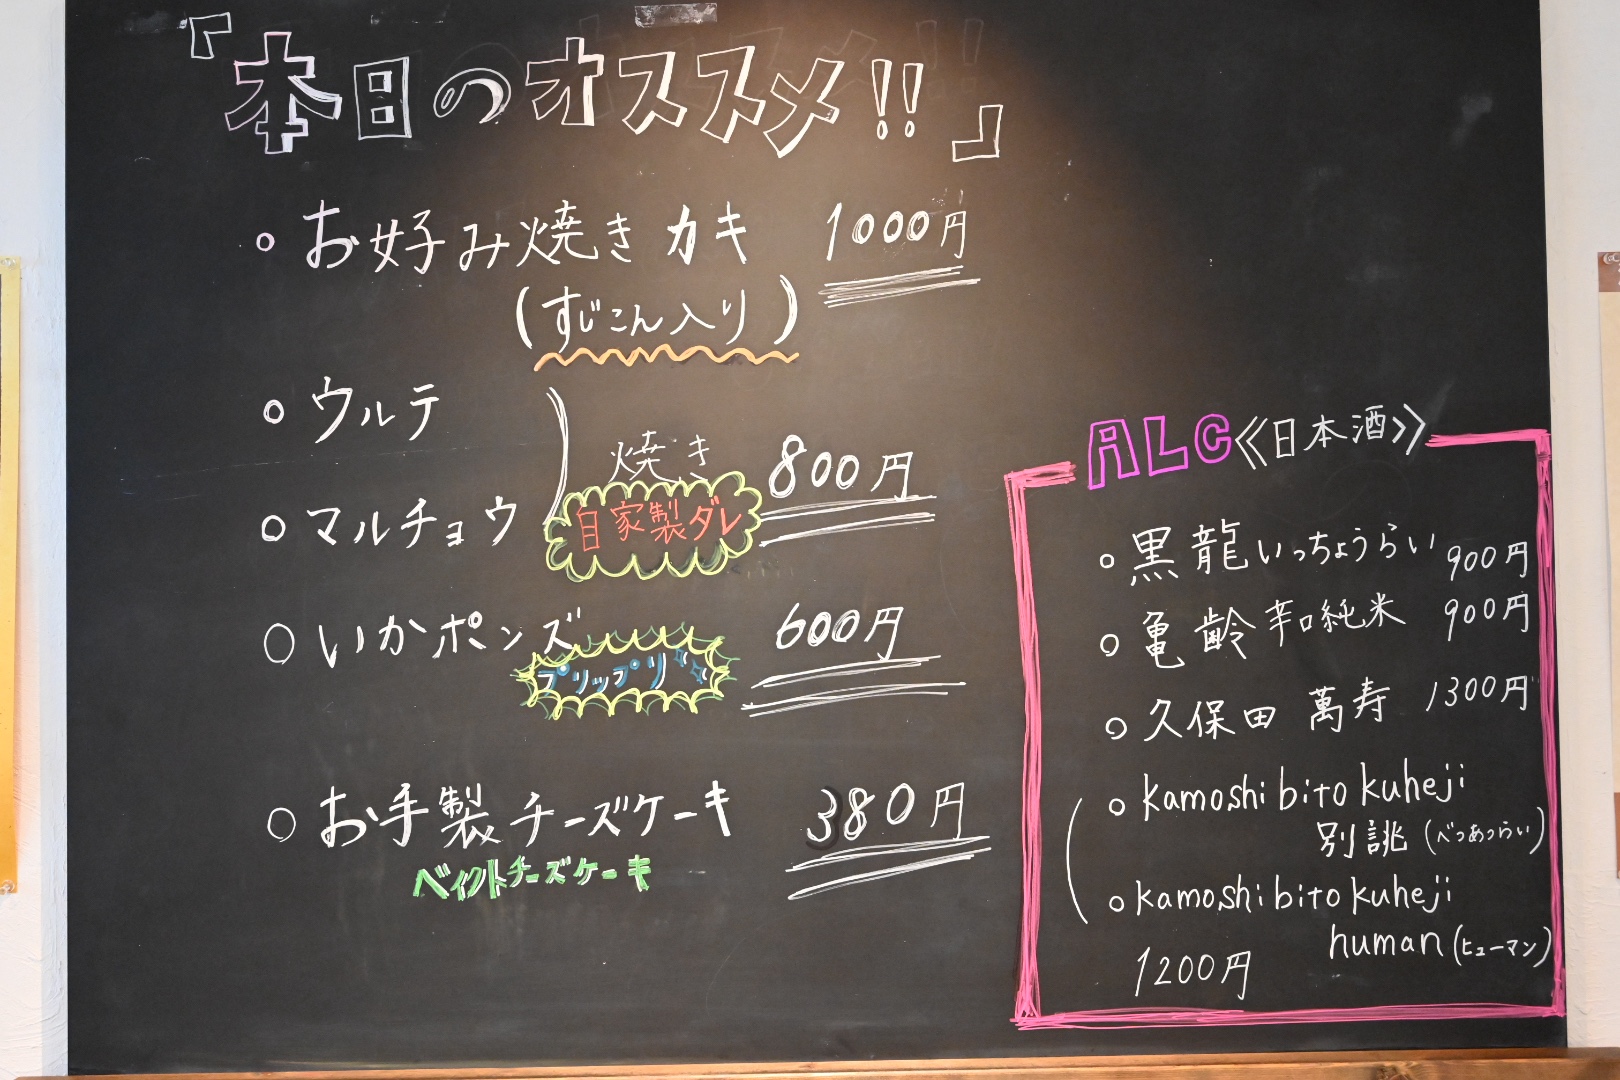 『本日のオススメ!!』
○ お好み焼き カキ 1000円
(すじこん入り)
○ ウルテ
焼き 800円
○ マルチョウ
自家製ダレ
○ いかポンズ 600円
プリップリ
○ お手製チーズケーキ 380円
ベイクトチーズケーキ
ALC《日本酒》
○ 黒龍いっちょうらい 900円
○ 亀齢 辛口純米 900円
○ 久保田 萬寿 1300円
○ kamoshibito kuheji
別誂(べつあつらい)
○ kamoshibito kuheji
human(ヒューマン)
1200円